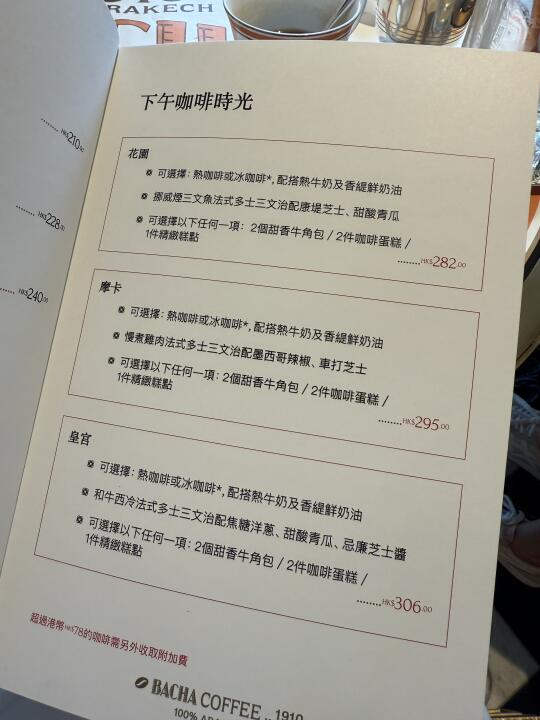 RAKECH
HK$210.00
HK$228.00
HK$240.00
下午咖啡時光
花園
可選擇：熱咖啡或冰咖啡*，配搭熱牛奶及香緹鮮奶油
挪威煙三文魚法式多士三文治配康堤芝士、甜酸青瓜
可選擇以下任何一項：2個甜香牛角包 / 2件咖啡蛋糕 /
1件精緻糕點
........HK$282.00
摩卡
可選擇：熱咖啡或冰咖啡*，配搭熱牛奶及香緹鮮奶油
慢煮雞肉法式多士三文治配墨西哥辣椒、車打芝士
可選擇以下任何一項：2個甜香牛角包 / 2件咖啡蛋糕 /
1件精緻糕點
........HK$295.00
皇宮
可選擇：熱咖啡或冰咖啡*，配搭熱牛奶及香緹鮮奶油
和牛西冷法式多士三文治配焦糖洋蔥、甜酸青瓜、忌廉芝士醬
可選擇以下任何一項：2個甜香牛角包 / 2件咖啡蛋糕 /
1件精緻糕點
........HK$306.00
超過港幣HK$78的咖啡需另外收取附加費
BACHA COFFEE 1910
100%